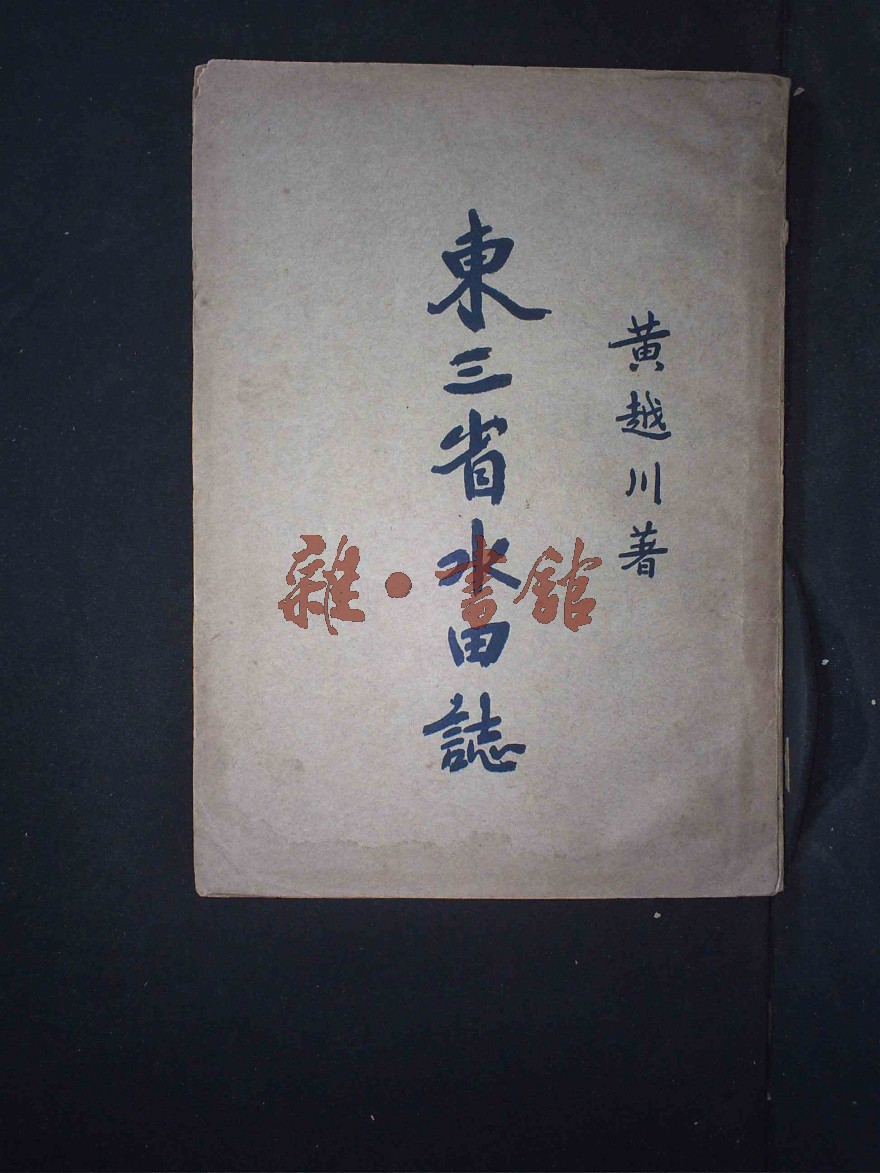 黃越川著
東三省水田誌
雜·書館